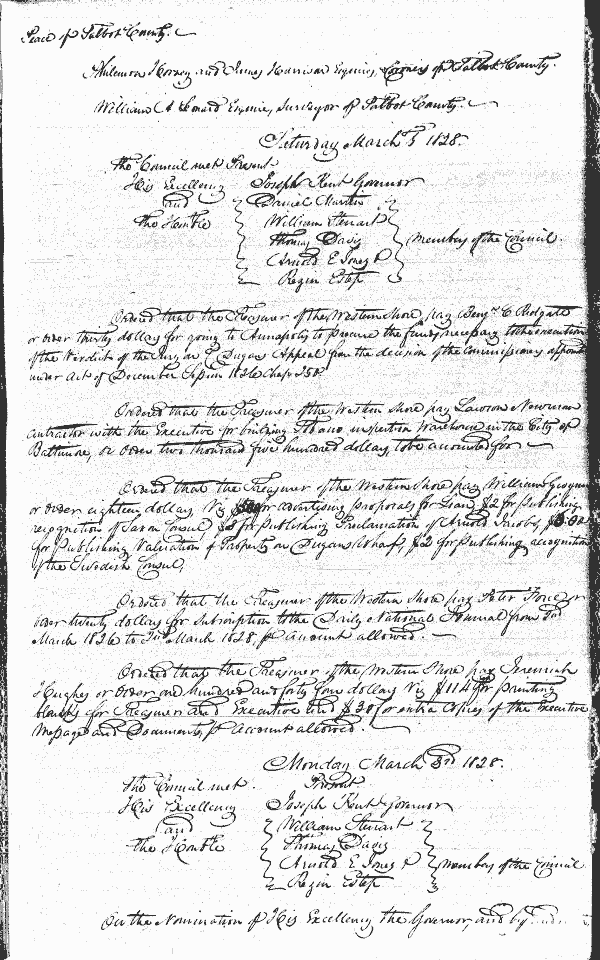 Peace of Talbot County.
Philemon Horney and James Harrison Esquires, Coroners of Talbot County.
William A Leonard Esquire, Surveyor of Talbot County.
Saturday March 1st 1828.
The Council met Present
His Excellency Joseph Kent Governor
and Daniel Martin
the Honble William Stewart
Thomas Davis members of the Council.
Arnold E Jones &
Rezin Estep
Ordered that the Treasurer of the Western Shore pay Benjn C Ridgate
or order thirty dollars for going to Annapolis to procure the funds necessary to the execution
of the Verdict of the Jury on Dugans Appeal from the decision of the Commissioners
under Act of December Session 1826 Chap
Ordered that the Treasurer of the Western Shore pay Lawson Newman
contractor with the Executive for building Tobacco inspection Warehouse in the City of
Baltimore, or order two thousand five hundred dollars, to be accounted for
Ordered that the Treasurer of the Western Shore pay William
or order eighteen dollars Viz for advertising proposals for Loan, $2 for publishing
recognition of Saxon Consul for Publishing Proclamation of Arnold Jacobs,
for Publishing Valuation of Property on Dugans Wharf, $2 for publishing recognition
of the Swedish Consul.
Ordered that the Treasurer of the Western Shore pay Peter Force or
order twenty dollars for Subscription to the Daily National Journal from
March 1826 to March 1828, pr account allowed.
Ordered that the Treasurer of the Western Shore pay Jeremiah
Hughes or Order one hundred and forty four dollars Viz $114 for printing
blanks for Treasurer and Executive and $30 for extra Copies of the Executive
Message and Documents pr account allowed.
Monday March 3rd 1828.
The Council met Present
His Excellency Joseph Kent Governor
and William Stewart
the Honble Thomas Davis
Arnold E Jones & members of the Council
Rezin Estep
On the Nomination of His Excellency the Governor, and by